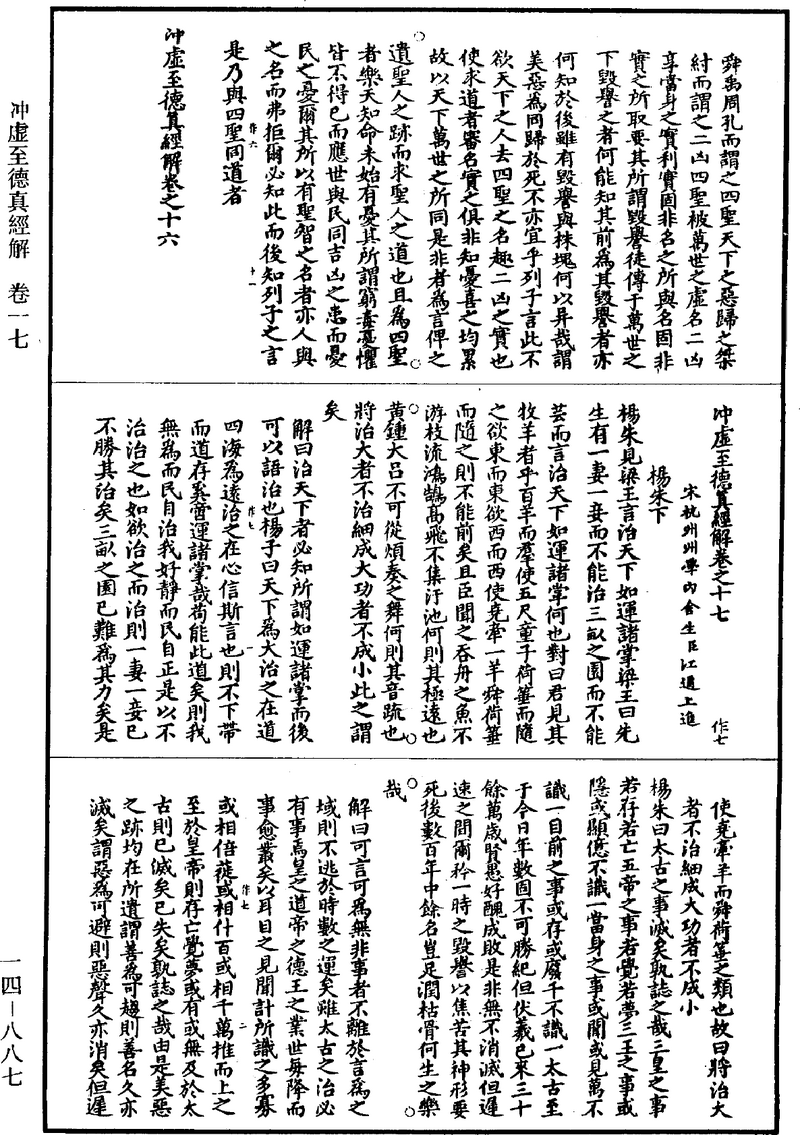 冲虛至德真經解　卷一七
一四—八八七
舜禹周孔而謂之四聖天下之惡歸之桀
紂而謂之二凶四聖被萬世之虛名二凶
享當身之實利實固非名之所與名固非
實之所取要其所謂毀譽徒傳于萬世之
下毀譽之者何能知其前為其毀譽者亦
何知於後雖有毀譽與株塊何以异哉謂
美惡為同歸於死不亦宜乎列子言此不
欲天下之人去四聖之名趣二凶之實也
使求道者審名實之俱非知憂喜之均累
故以天下萬世之所同是非者為言俾之
遺聖人之跡而求聖人之道也且為四聖
者樂天知命未始有憂其所謂窮毒憂懼
皆不得已而應世與民同吉凶之患而憂
民之憂爾其所以有聖智之名者亦人與
之名而弗拒爾必知此而後知列子之言
是乃與四聖同道者
作六
十一
冲虛至德真經解卷之十六
冲虛至德真經解卷之十七
作七
宋杭州州學內舍生臣江遹上進
楊朱下
楊朱見梁王言治天下如運諸掌梁王曰先
生有一妻一妾而不能治三畝之園而不能
芸而言治天下如運諸掌何也對曰君見其
牧羊者乎百羊而羣使五尺童子荷箠而隨
之欲東而東欲西而西使堯牽一羊舜荷箠
而隨之則不能前矣且臣聞之吞舟之魚不
游枝流鴻鵠高飛不集汙池何則其極遠也
黃鍾大呂不可從煩奏之舞何則其音疏也
將治大者不治細成大功者不成小此之謂
矣
解曰治天下者必知所謂如運諸掌而後
可以語治也楊子曰天下為大治之在道
四海為遠治之在心信斯言也則不下帶
而道存奚啻運諸掌哉苟能此道矣則我
無為而民自治我好靜而民自正是以不
治治之也如欲治之而治則一妻一妾已
不勝其治矣三畝之園已難為其力矣是
作七
一
使堯牽羊而舜荷箠之類也故曰將治大
者不治細成大功者不成小
楊朱曰太古之事滅矣孰誌之哉三皇之事
若存若亡五帝之事若覺若夢三王之事或
隱或顯億不識一當身之事或聞或見萬不
識一目前之事或存或廢千不識一太古至
于今日年數固不可勝紀但伏羲已來三十
餘萬歲賢愚好醜成敗是非無不消滅但遲
速之間爾矜一時之毀譽以焦苦其神形要
死後數百年中餘名豈足潤枯骨何生之樂
哉
解曰可言可為無非事者不離於言為之
域則不逃於時數之運矣雖太古之治必
有事焉皇之道帝之德王之業世每降而
事愈叢矣以耳目之見聞計所識之多寡
或相倍蓰或相什百或相千萬推而上之
至於皇帝則存亡覺夢或有或無及於太
古則已滅矣已失矣孰誌之哉由是美惡
之跡均在所遺謂善為可趨則善名久亦
滅矣謂惡為可避則惡聲久亦消矣但遲
作七
二